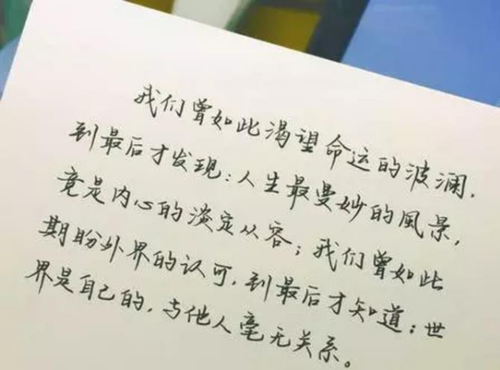 我们曾如此渴望命运的波澜，
到最后才发现：人生最曼妙的风景，
竟是内心的淡定从容；我们曾如此
期盼外界的认可，到最后才知道：世
界是自己的，与他人毫无关系。